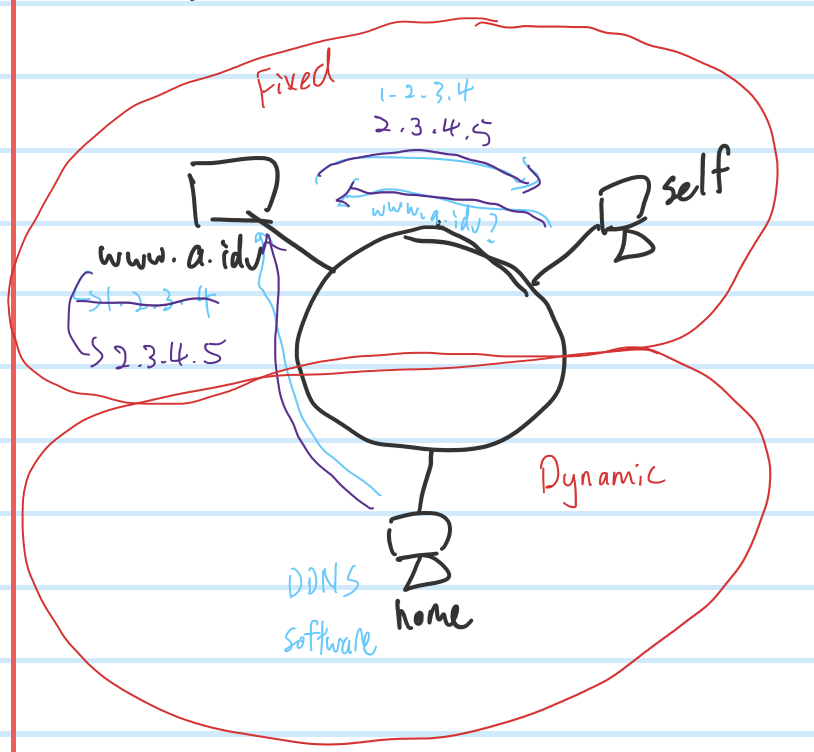 Fixed
1-2-3.4
2.3.4.5
self
www.a.idv?
www.a.idv
→1.2.3.4
→2.3.4.5
Dynamic
DDNS
software
home